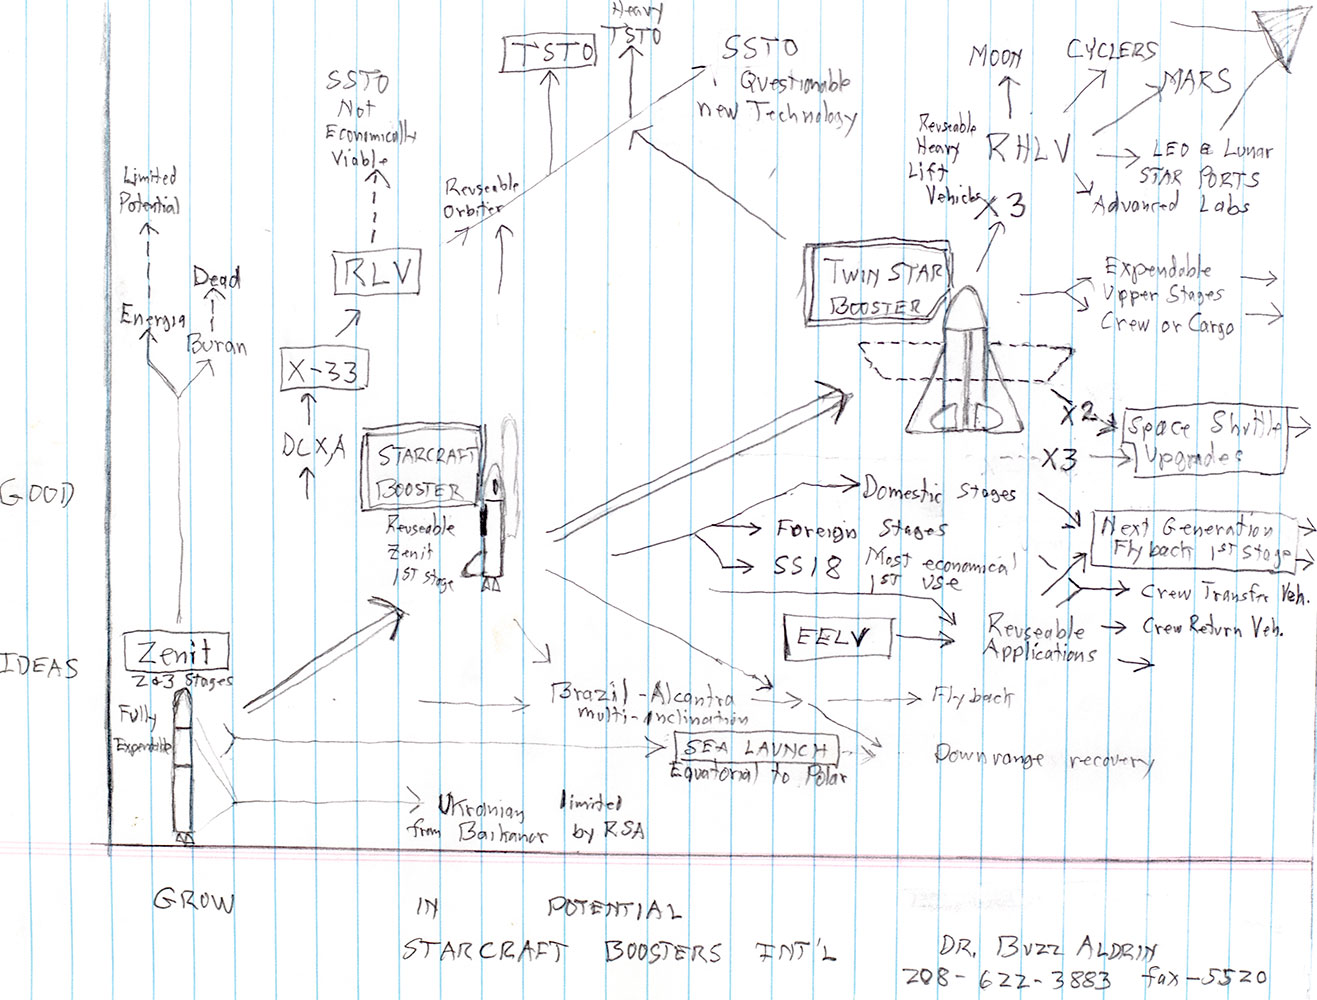 Heavy
TSTO
TSTO
SSTO
Questionable
new Technology
MOON
CYCLERS
MARS
SSTO
Not
Economically
Viable
Reuseable
Heavy
Lift
Vehicles
RHLV
X3
LEO & Lunar
STAR PORTS
Advanced Labs
Limited
Potential
Reuseable
Orbiter
Dead
RLV
Energia
Buran
X-33
DCX,A
TWIN STAR
BOOSTER
Expendable
Upper Stages
Crew or Cargo
X2
X3
Space Shuttle
Upgrades
STARCRAFT
BOOSTER
Reuseable
Zenit
1ST Stage
GOOD
IDEAS
Domestic Stages
Foreign Stages
SS18 Most economical
1ST USE
Next Generation
Flyback 1ST Stage
Crew Transfer Veh.
Crew Return Veh.
EELV
Reuseable
Applications
Zenit
2&3 Stages
Fully
Expendable
Brazil-Alcantra
multi-inclination
Flyback
SEA LAUNCH
Equatorial to Polar
Downrange recovery
Ukranian limited
from Baikanor by RSA
GROW IN POTENTIAL
STARCRAFT BOOSTERS INT'L
DR. BUZZ ALDRIN
208-622-3883 fax-5520